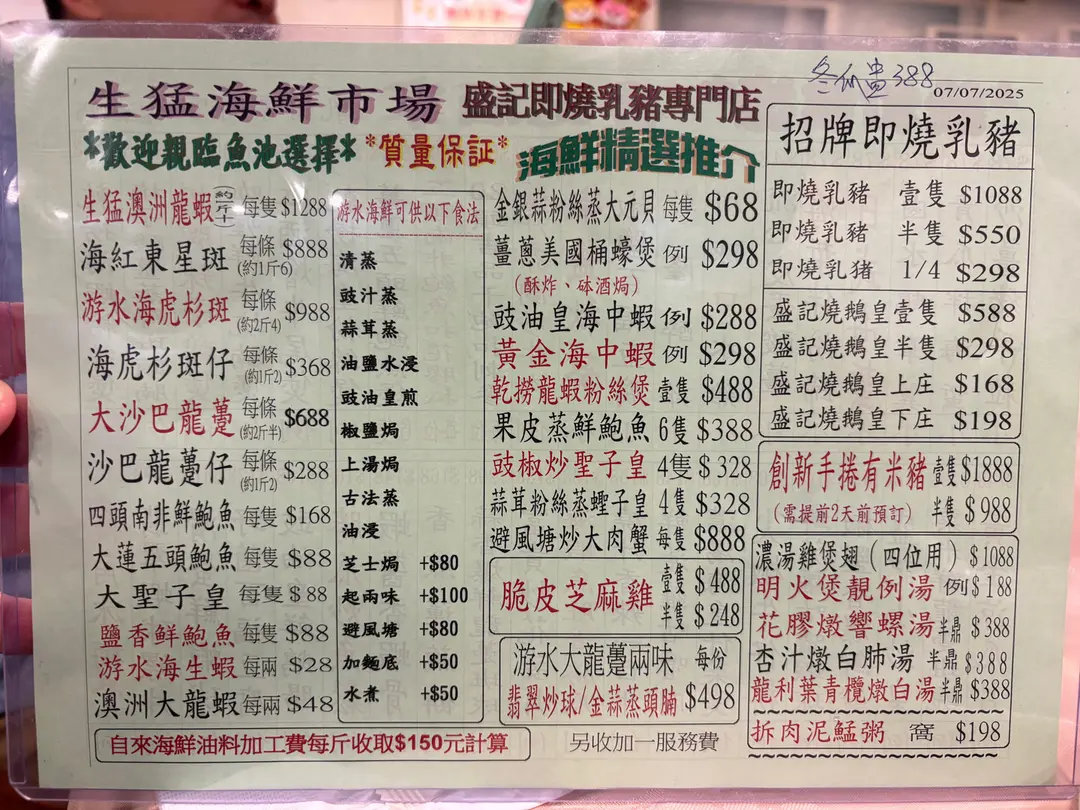 冬瓜盅388
07/07/2025
生猛海鮮市場 盛記即燒乳豬專門店
*歡迎親臨魚池選擇* *質量保証* 海鮮精選推介
生猛澳洲龍蝦 每隻 $1288
海紅東星斑 每條 (約1斤6) $888
游水海虎杉斑 每條 (約2斤4) $988
海虎杉斑仔 每條 (約1斤2) $368
大沙巴龍躉 每條 (約2斤半) $688
沙巴龍躉仔 每條 (約1斤2) $288
四頭南非鮮鮑魚 每隻 $168
大蓮五頭鮑魚 每隻 $88
大聖子皇 每隻 $88
鹽香鮮鮑魚 每隻 $88
游水海生蝦 每兩 $28
澳洲大龍蝦 每兩 $48
游水海鮮可供以下食法
清蒸
豉汁蒸
蒜茸蒸
油鹽水浸
豉油皇煎
椒鹽焗
上湯焗
古法蒸
油浸
芝士焗 +$80
起兩味 +$100
避風塘 +$80
加麵底 +$50
水煮 +$50
金銀蒜粉絲蒸大元貝 每隻 $68
薑蔥美國桶蠔煲 例 $298
(酥炸、砵酒焗)
豉油皇海中蝦 例 $288
黃金海中蝦 例 $298
乾撈龍蝦粉絲煲 壹隻 $488
果皮蒸鮮鮑魚 6隻 $388
豉椒炒聖子皇 4隻 $328
蒜茸粉絲蒸蟶子皇 4隻 $328
避風塘炒大肉蟹 每隻 $888
脆皮芝麻雞 壹隻 $488
半隻 $248
游水大龍躉兩味 每份
翡翠炒球/金蒜蒸頭腩 $498
招牌即燒乳豬
即燒乳豬 壹隻 $1088
即燒乳豬 半隻 $550
即燒乳猪 1/4 $298
盛記燒鵝皇壹隻 $588
盛記燒鵝皇半隻 $298
盛記燒鵝皇上庄 $168
盛記燒鵝皇下庄 $198
創新手捲有米豬 壹隻 $1888
(需提前2天前預訂) 半隻 $988
濃湯雞煲翅（四位用） $1088
明火煲靚例湯 例 $188
花膠燉響螺湯 半鼎 $388
杏汁燉白肺湯 半鼎 $388
龍利葉青欖燉白湯 半鼎 $388
拆肉泥鯭粥 窩 $198
自來海鮮油料加工費每斤收取$150元計算
另收加一服務費